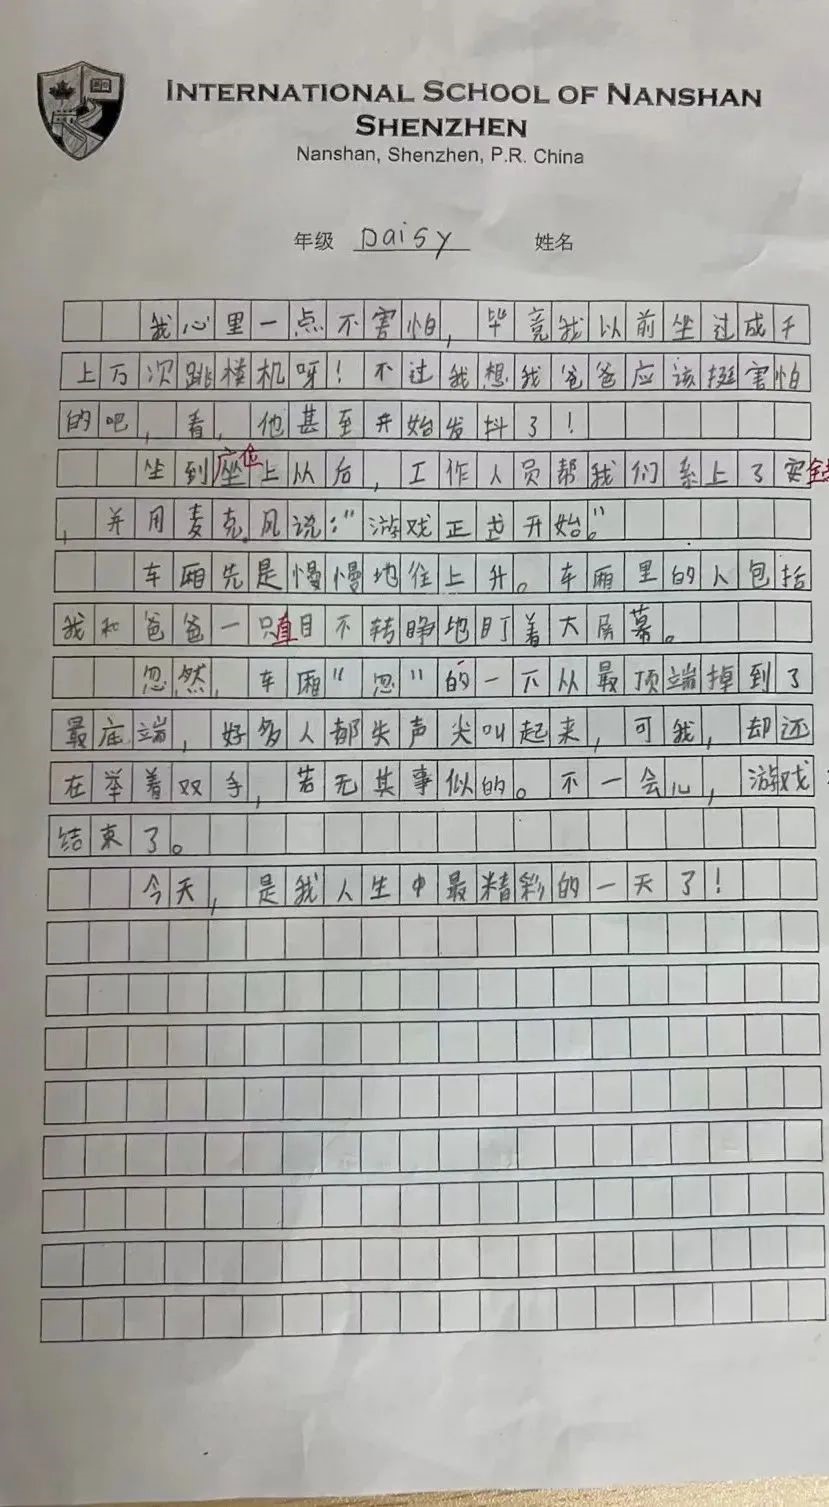 INTERNATIONAL SCHOOL OF NANSHAN
SHENZHEN
Nanshan, Shenzhen, P.R. China
年级 Daisy 姓名
我心里一点不害怕，毕竟我以前坐过成千
上万次跳楼机呀！不过我想我爸爸应该挺害怕
的吧，看，他甚至开始发抖了！
坐到座位上从后，工作人员帮我们系上了安全
，并用麦克风说："游戏正式开始。"
车厢先是慢慢地往上升。车厢里的人包括
我和爸爸一直目不转睁地盯着大屏幕。
忽然，车厢"忽"的一下从最顶端掉到了
最底端，好多人都失声尖叫起来，可我，却还
在举着双手，若无其事似的。不一会儿，游戏
结束了。
今天，是我人生中最精彩的一天了！